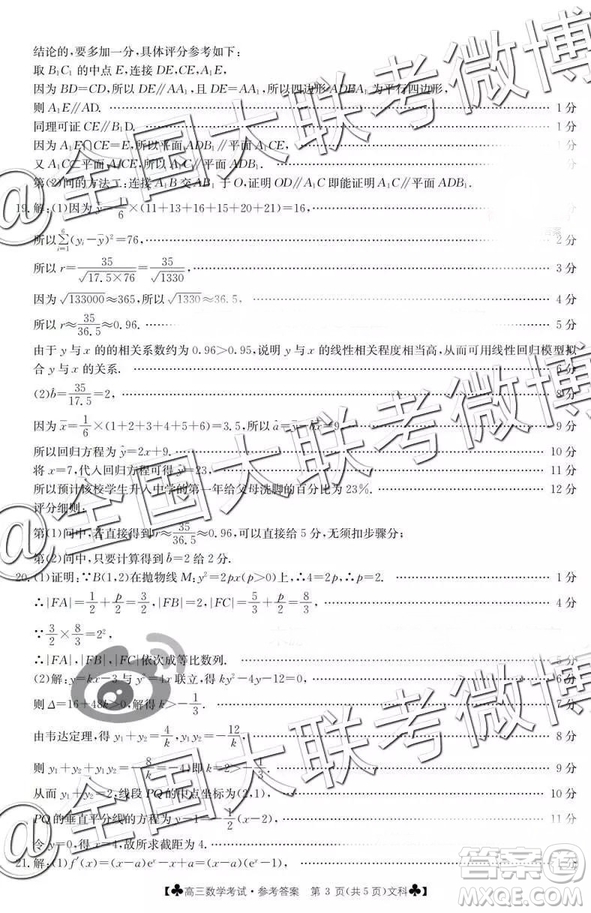 结论的,要多加一分,具体评分参考如下:
取 B₁C₁ 的中点 E,连接 DE,CE,A₁E,
因为 BD=CD,所以 DE∥AA₁,且 DE=AA₁,所以四边形 ADEA₁ 为平行四边形,
则 A₁E∥AD. 1 分
同理可证 CE∥B₁D. 1 分
因为 A₁E∩CE=E,所以平面 A₁CE∥平面 ADB₁, 1 分
又 A₁C⊂平面 A₁CE,所以 A₁C∥平面 ADB₁. 1 分
第(2)问的方法二:连接 A₁B 交 AB₁ 于 O,证明 OD∥A₁C 即能证明 A₁C∥平面 ADB₁.
19.解:(1)因为 y̅=1/6×(11+13+16+15+20+21)=16, 1 分
所以 ∑(i=1→6)(yᵢ-y̅)²=76, 2 分
所以 r=35/√(17.5×76)=35/√1330, 3 分
因为 √133000≈365,所以 √1330≈36.5, 4 分
所以 r≈35/36.5≈0.96. 5 分
由于 y 与 x 的的相关系数约为 0.96>0.95,说明 y 与 x 的线性相关程度相当高,从而可用线性回归模型拟
合 y 与 x 的关系. 6 分
(2)b̂=35/17.5=2, 8 分
因为 x̅=1/6×(1+2+3+4+5+6)=3.5,所以 â=y̅-b̂x̅=9. 9 分
所以回归方程为 ŷ=2x+9. 10 分
将 x=7,代入回归方程可得 ŷ=23. 11 分
所以预计该校学生升入中学的第一年给父母洗脚的百分比为 23%. 12 分
评分细则:
第(1)问中,若直接得到 r≈35/36.5≈0.96,可以直接给 5 分,无须扣步骤分;
第(2)问中,只要计算得到 b̂=2 给 2 分.
20.(1)证明:∵B(1,2)在抛物线 M:y²=2px(p>0)上,∴4=2p,∴p=2, 1 分
∴|FA|=1/2+p/2=3/2,|FB|=2,|FC|=5/3+p/2=8/3, 4 分
∵3/2×8/3=2²,
∴|FA|,|FB|,|FC|依次成等比数列. 5 分
(2)解:y=kx-3 与 y²=4x 联立,得 ky²-4y-12=0, 6 分
则 Δ=16+48k>0,解得 k>-1/3. 7 分
由韦达定理,得 y₁+y₂=4/k,y₁y₂=-12/k, 8 分
则 y₁+y₂+y₁y₂=-8/k=-4,即 k=2, 9 分
从而 y₁+y₂=2,线段 PQ 的中点坐标为(2,1), 10 分
PQ 的垂直平分线的方程为 y-1=-1/2(x-2), 11 分
令 y=0,得 x=4,故所求截距为 4. 12 分
21.解:(1)f′(x)=(x-a)(eˣ-x+a)=(x-a)eˣ,
♣高三数学考试·参考答案 第 3 页(共 5 页)文科♣
@全国大联考微博
@全国大联考微博
@全国大联考微博
答案圈
MXQE.COM